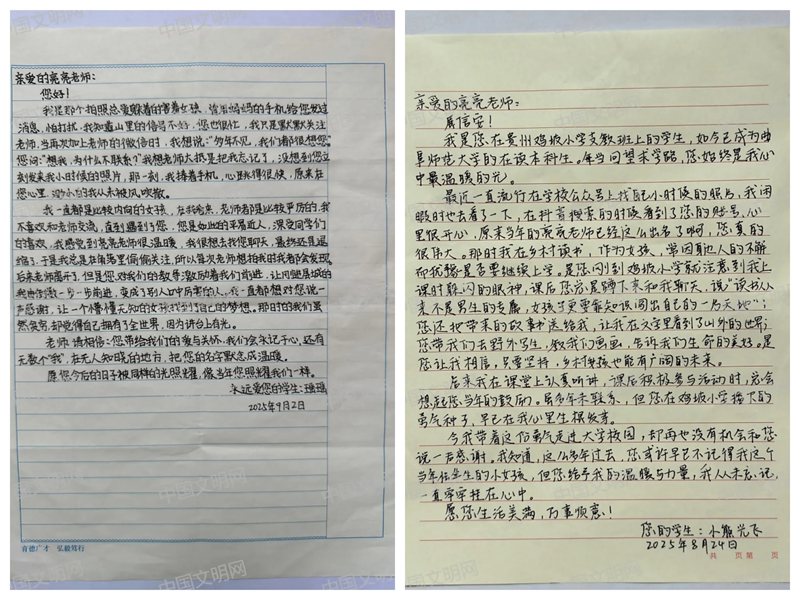 亲爱的亮亮老师：
您好！
我是那个拍照总爱躲着的害羞女孩，曾用妈妈的手机给您发过
消息，怕打扰，我知道山里的信号不好，您也很忙，我只是默默关注
老师，当再次加上老师的微信时，我想说：“好久不见，我们都很想您”
您问：“想我，为什么不联系？”我想老师大抵是把我忘记了，没想到您立
刻发来我小时候的照片，那一刻，我捧着手机，心跳得很快，原来在
您心里，渺小的我从未被风吹散。
我一直都是比较内向的女孩，在我印象，老师都是比较严厉的，我
不喜欢和老师交流，直到遇到了您，您是如此的平易近人，深受同学们
的喜欢，我感觉到亮亮老师很温暖，我很想去找您聊天，最终还是退
缩了，于是我总是在角落里偷偷关注，所以每次老师想拍我时我都会发现
后来老师离开了，但是您对我们的教导激励着我们前进，让
一步一步前进，变成了别人口中厉害的人，我一直都想对您说一
声感谢，让一个懵懵无知的女孩找到了自己的梦想。那时的我们虽
然贫穷，却觉得自己拥有了全世界，因为讲台上有光。
老师，请相信：您带给我们的爱与关怀，我们会永记于心，还有
无数个“我”，在无人知晓的地方，把您的名字默念成温暖。
愿您今后的日子被同样的光照耀，像当年您照耀我们一样。
永远爱您的学生：瑶瑶
2025年9月2日
育德广才 弘毅笃行
亲爱的亮亮老师：
展信安！
我是您在贵州鸡坡小学支教班上的学生，如今已成为曲
阜师范大学的在读本科生。每当回望求学路，您始终是我心
中最温暖的光。
最近一直流行在学校公众号上找自己小时候的照片，我闲
暇时也去看了一下，在抖音搜索的时候看到了您的账号，心
里很开心，原来当年的亮亮老师已经这么出名了啊，您真的
很伟大。那时我在乡村读书，作为女孩，常因身边人的不解
而犹豫是否要继续上学。是您刚到鸡坡小学就注意到我上
课时躲闪的眼神，课后您总是蹲下来和我聊天，说“读书从
来不是男生的专属，女孩子更要靠知识闯出自己的一片天地”；
您还把带来的故事书送给我，让我在文字里看到了山外的世界；
您带我们去野外写生，教我们画画，告诉我们生命的美好。是
您让我相信，只要坚持，乡村女孩也能有广阔的未来。
后来我在课堂上认真听讲，课后积极参与活动时，总会
想起您当年的鼓励。虽多年未联系，但您在鸡坡小学播下的
勇气种子，早已在我心里生根发芽。
今我带着这份勇气走进大学校园，却再也没有机会和您
说一声感谢。我知道，这么多年过去，您或许早已不记得我这个
当年怯生生的小女孩，但您给予我的温暖与力量，我从未忘记，
一直牢牢挂在心中。
愿您生活美满，万事顺意！
您的学生：小熊光飞
2025年8月24日
共 页 第 页
中国文明网
中国文明网